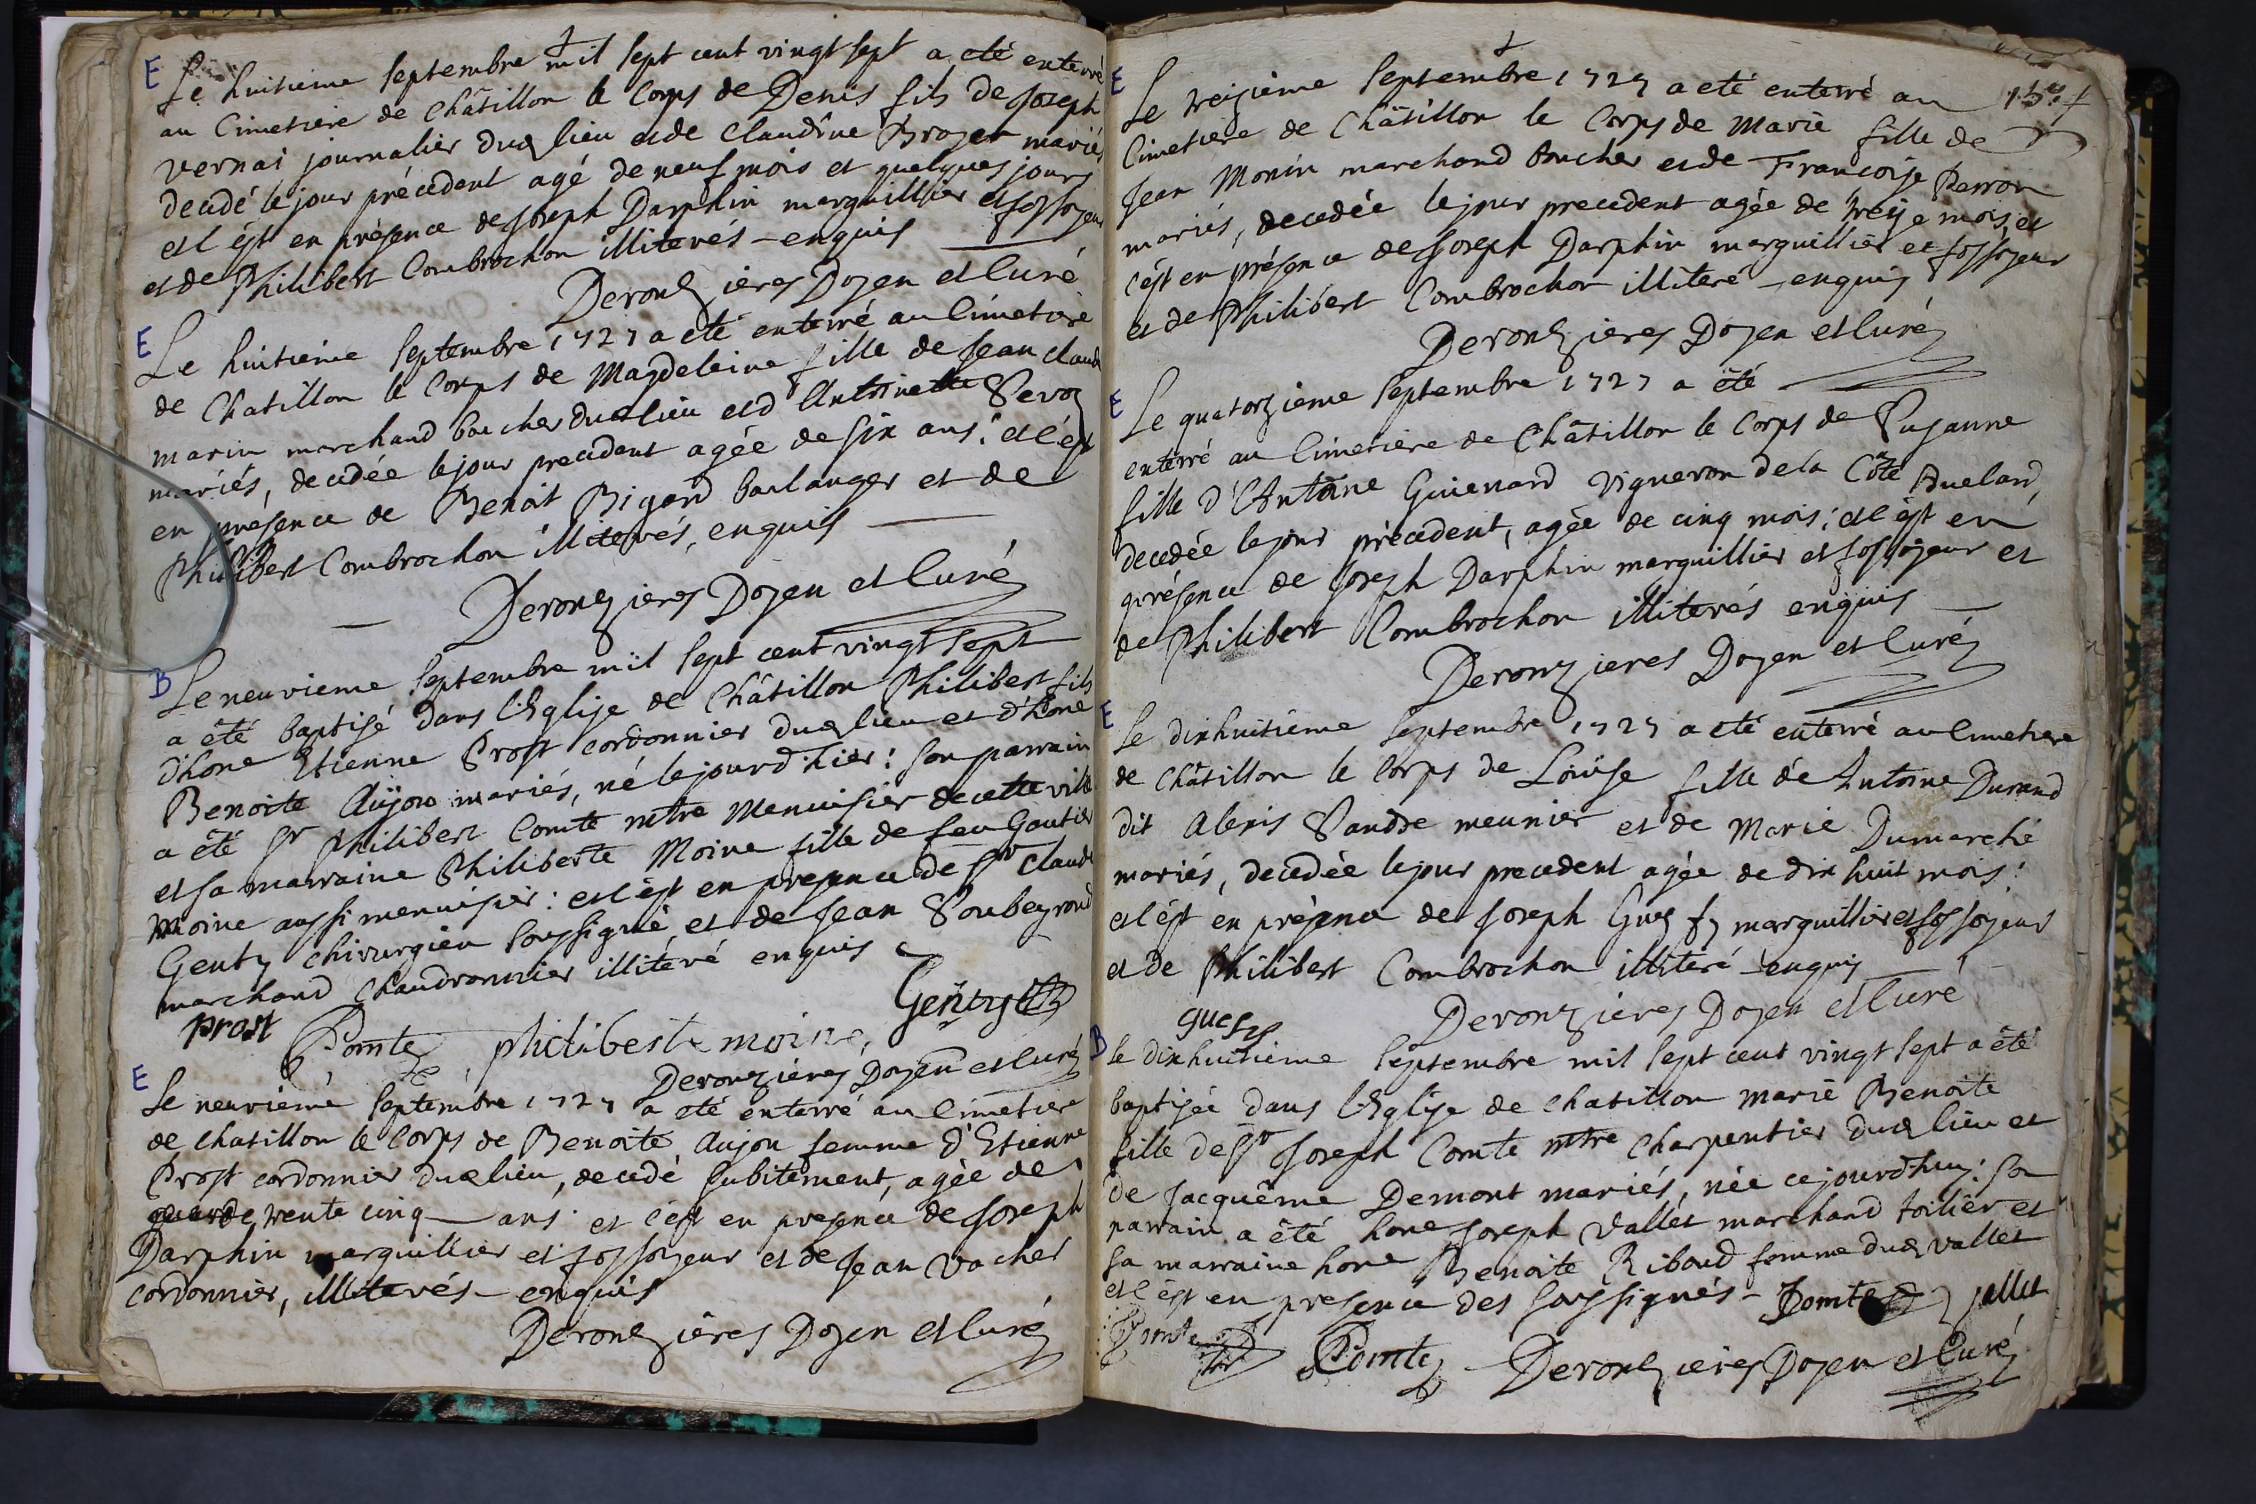 E
Le huitieme Septembre mil sept cent vingt sept a eté enterré
au Cimetiere de Châtillon le Corps de Denis fils de Joseph
Vernai journalier dud lieu et de Claudine Broyer mariés
decedé le jour précedent agé de neuf mois et quelques jours
et c'ést en présence de Joseph Darphin marguillier et fossoyeur
et de Philibert Combrochon illiterés - enquis
Deronzieres Doyen et Curé
E
Le huitieme Septembre 1727 a eté enterré au Cimetiere
de Chatillon le Corps de Magdeleine fille de Jean Claude
marin marchand boucher dud lieu et d'Antoinette
mariés, decedée le jour precedent agée de six ans: et c'ést
en présence de Benoit Bigard boulanger et de
Philibert Combrochon illiterés, enquis
Deronzieres Doyen et Curé
B
Le neuvieme Septembre mil sept cent vingt sept
a été baptisé dans l'Eglise de Châtillon Philibert fils
d'hone Etienne Prost cordonnier dud lieu et d'hone
Benoite Aujou mariés, né le jourd'hier: son parrain
a été Sr Philibert Comte mtre Menuisier de cette ville
et sa marraine Philiberte Moine fille de feu Gautier
Moine aussi menuisier: et c'ést en presence de Sr Claude
Genty chirurgien soussigné et de Jean Soubeyrand
marchand Chaudronnier illiteré enquis
Gentys
prost Comte philiberte moine
Deronzieres Doyen et Curé
E
Le neuvieme Septembre 1727 a eté enterré au Cimetiere
de chatillon le Corps de Benoite Aujou femme d'Etienne
Prost cordonnier dud lieu, decedé subitement, agée de
trente cinq ans et c'ést en presence de Joseph
Darphin marguillier et fossoyeur et de Jean Vacher
cordonnier, illiterés - enquis
Deronzieres Doyen et Curé
E
Le treizieme Septembre 1727 a eté enterré au
Cimetiere de Châtillon le Corps de Marie fille de
Jean Monin marchand boucher et de Francoise Perron
mariés, decedée le jour precedent agée de treize mois, et
c'ést en présence de Joseph Darphin marguillier et fossoyeur
et de Philibert Combrochon illiteré - enquis
Deronzieres Doyen et Curé
E
Le quatorzieme Septembre 1727 a été
enterré au Cimetiere de Châtillon le Corps de Suzanne
fille d'Antoine Guienard Vigneron de la Côte
decedée le jour précedent, agée de cinq mois: et c'ést en
présence de Joseph Darphin marguillier et fossoyeur et
de Philibert Combrochon illiterés enquis
Deronzieres Doyen et Curé
E
Le dixhuitieme Septembre 1727 a eté enterré au Cimetiere
de Châtillon le Corps de Loüise fille de Antoine Durand
dit Alexis meunier et de Marie Dumarché
mariés, decedée le jour precedent agée de dix huit mois:
et c'ést en présence de Joseph marguillier et fossoyeur
et de Philibert Combrochon illiteré - enquis
Deronzieres Doyen et Curé
B
le dixhuitieme Septembre mil sept cent vingt sept a été
baptisée dans l'Eglise de chatillon marie Benoite
fille de Sr Joseph Comte mtre Charpentier dud lieu et
de Jacquême Demont mariés, née cejourd'huy: son
parrain a été hone Joseph Vallet marchand toilier et
sa marraine hone Benoite Ribaud femme dud vallet
et c'ést en presence des soussignés - Comte vallet
Comte Comte Deronzieres Doyen et Curé